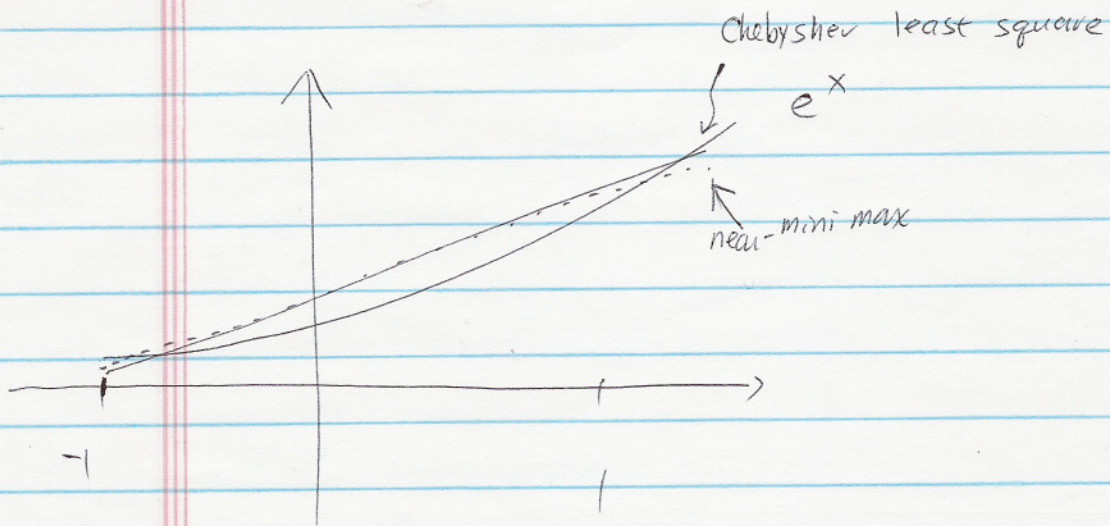 Chebyshev least square
e^x
near-mini max
-1
1